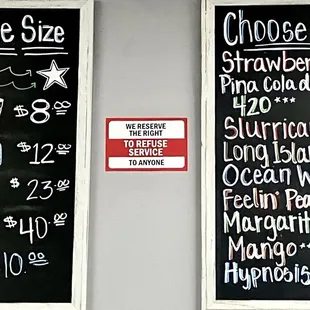 e Size
$8.00
$12.00
$23.00
$40.00
10.00
WE RESERVE
THE RIGHT
TO REFUSE
SERVICE
TO ANYONE
Choose
Strawber
Pina Colad
420 ***
Slurrican
Long Islan
Ocean W
Feelin' Pea
Margarit
Mango **
Hypnosis